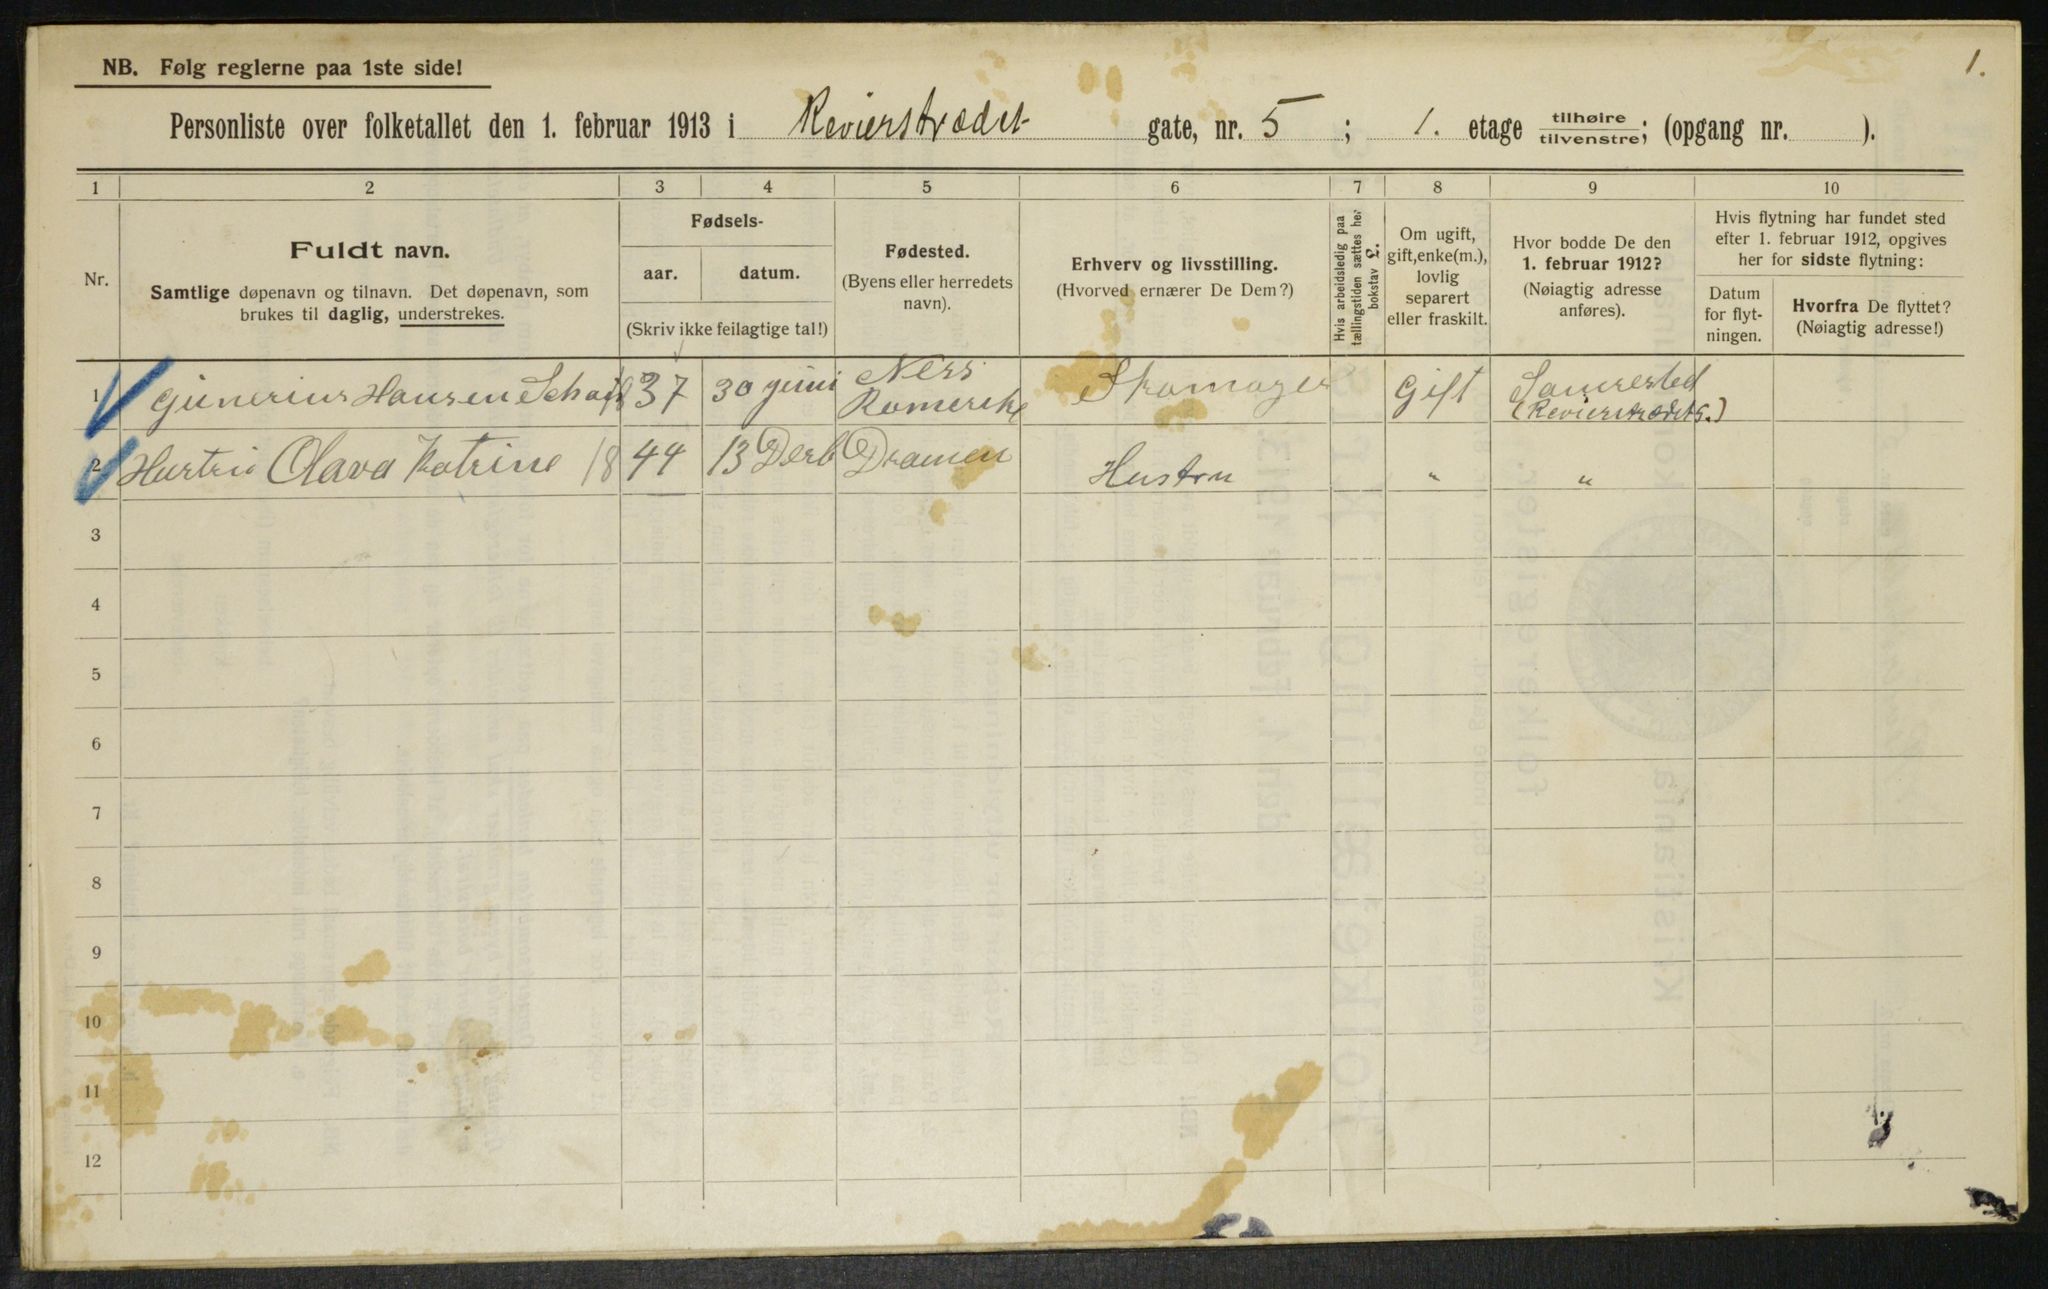 1.
NB. Følg reglerne paa 1ste side!
Personliste over folketallet den 1. februar 1913 i Revierstrædet gate, nr. 5 ; 1. etage tilhøire tilvenstre; (opgang nr. ).
1 2 3 4 5 6 7 8 9 10
Nr.
Fuldt navn.
Samtlige døpenavn og tilnavn. Det døpenavn, som
brukes til daglig, understrekes.
Fødsels-
aar. datum.
(Skriv ikke feilagtige tal!)
Fødested.
(Byens eller herredets
navn).
Erhverv og livsstilling.
(Hvorved ernærer De Dem?)
Hvis arbeidsledig paa
tællingstiden sættes her
bokstav L.
Om ugift,
gift, enke(m.),
lovlig
separert
eller fraskilt.
Hvor bodde De den
1. februar 1912?
(Nøiagtig adresse
anføres).
Hvis flytning har fundet sted
efter 1. februar 1912, opgives
her for sidste flytning:
Datum
for flyt-
ningen.
Hvorfra De flyttet?
(Nøiagtig adresse!)
1 Gunerius Hansen 1837 30 juni Ness Romerike Skomager Gift Samested
(Revierstrædet 5.)
2 Hustru Olava Katrine 1844 13 Decb Dramen Hustru " "
3
4
5
6
7
8
9
10
11
12